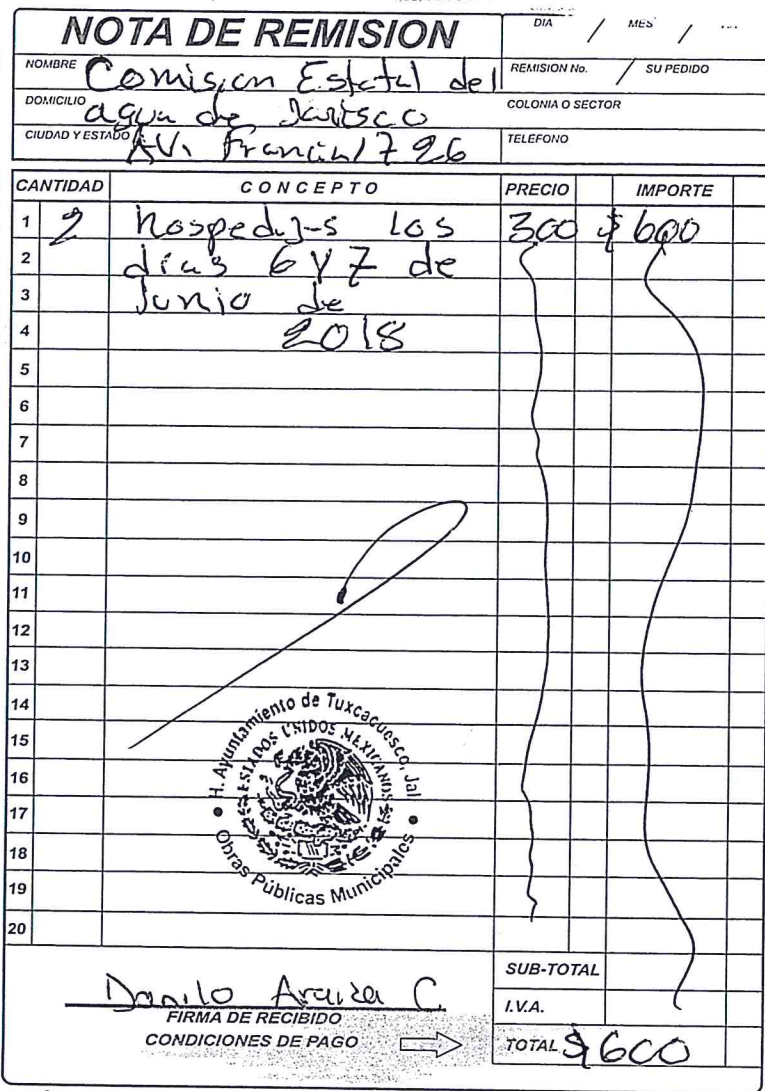 NOTA DE REMISION
DIA / MES /
NOMBRE Comision Estatal del
REMISION No. / SU PEDIDO
DOMICILIO agua de Jalisco
COLONIA O SECTOR
CIUDAD Y ESTADO AV. Francia 1726
TELEFONO
CANTIDAD CONCEPTO PRECIO IMPORTE
1 2 hospedajes los 300 $ 600
2 dias 6 y 7 de
3 Junio de
4 2018
5
6
7
8
9
10
11
12
13
14
15
16
17
18
19
20
H. Ayuntamiento de Tuxcacuesco, Jal
ESTADOS UNIDOS MEXICANOS
Obras Públicas Municipales
SUB-TOTAL
Danilo Araiza C
I.V.A.
FIRMA DE RECIBIDO
CONDICIONES DE PAGO
TOTAL $ 600